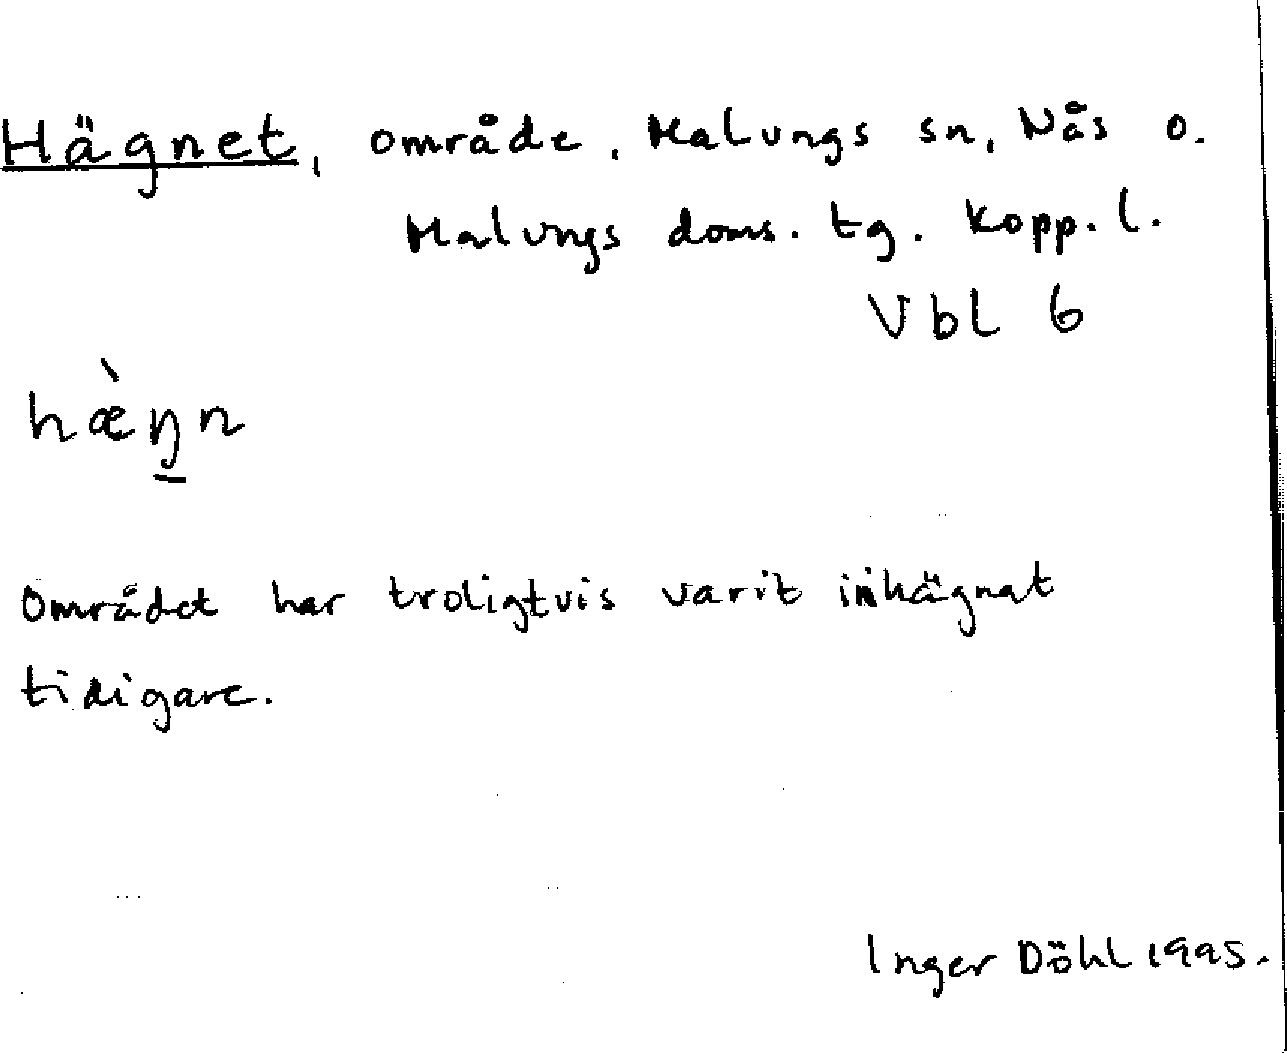 Hägnet, område, Malungs sn, Nås o.
Malungs doms. tg. Kopp. l.
Vbl 6
hæ̀ŋ̲n
Området har troligtvis varit inhägnat
tidigare.
Inger Döhl 1995.